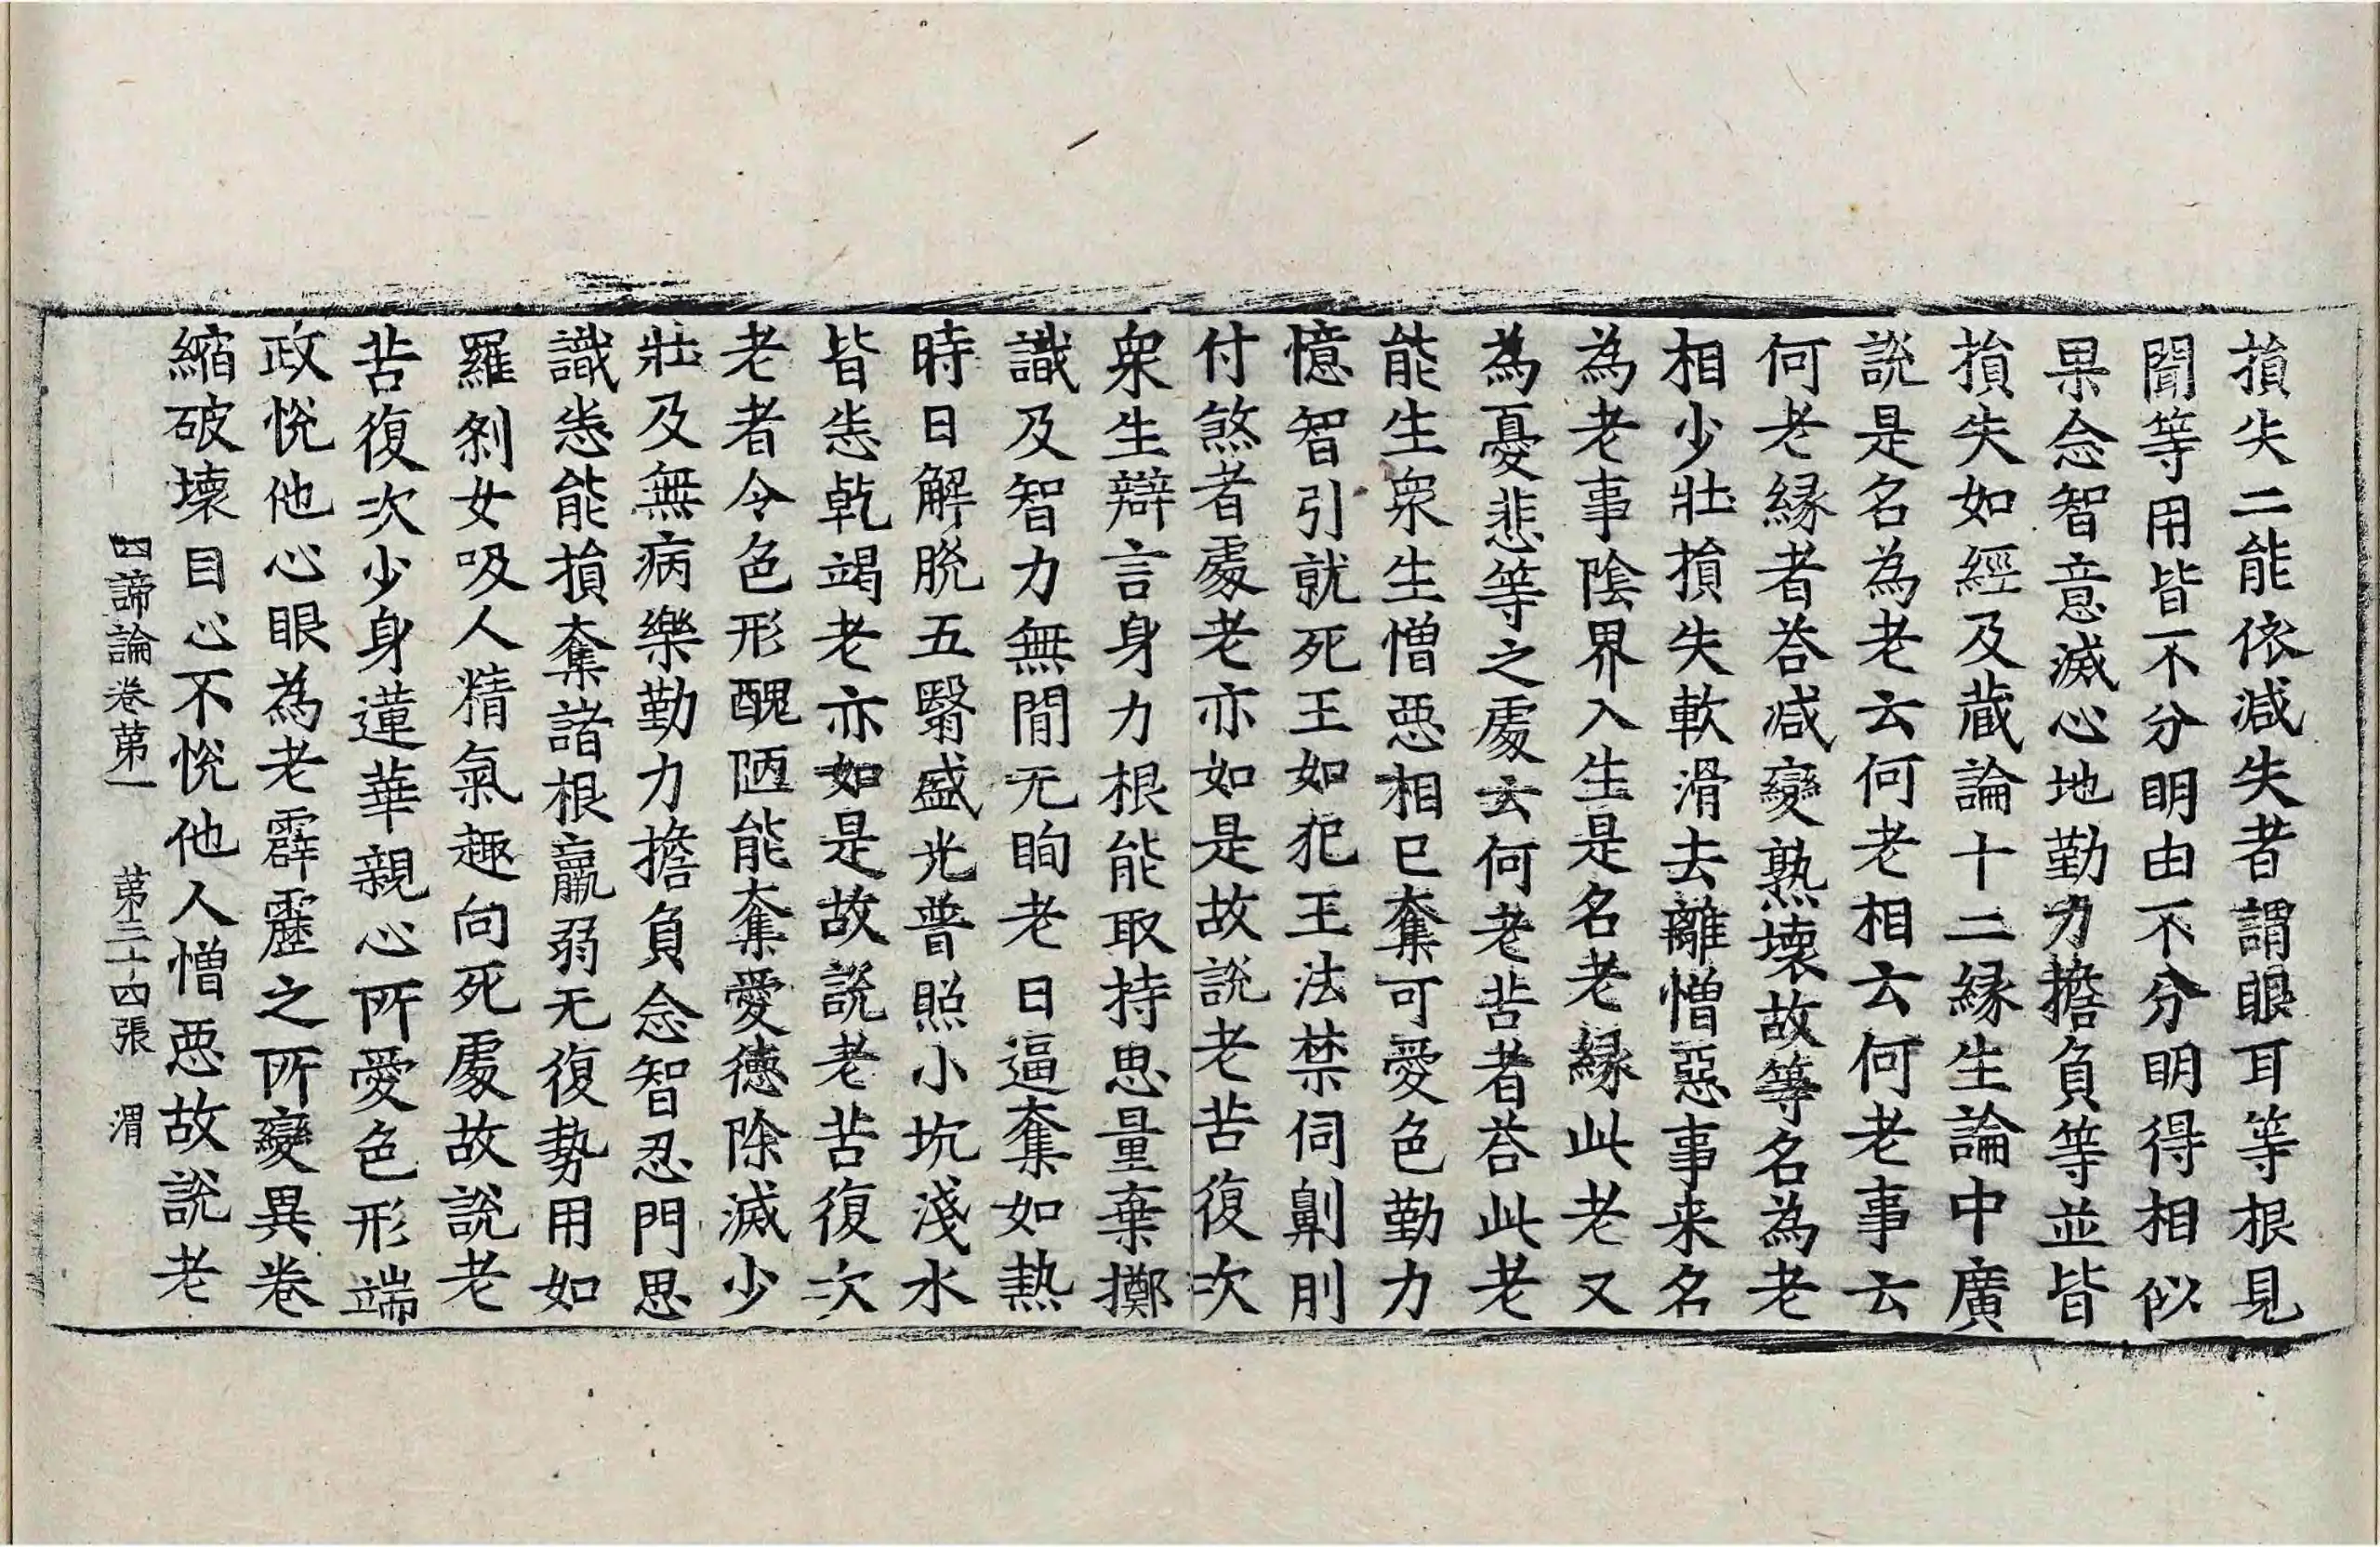 損失二能依減失者謂眼耳等根見
聞等用皆不分明由不分明得相似
果念智意滅心地勤力擔負等並皆
損失如經及蔵論十二緣生論中廣
說是名為老云何老相云何老事云
何老緣者荅減變熟壞故等名為老
相少壯損失軟滑去離憎惡事来名
為老事陰界入生是名老緣此老又
為憂悲等之處云何老苦者荅此老
能生衆生憎惡相已奪可愛色勤力
憶智引就死王如犯王法禁伺劓刖
付煞者處老亦如是故說老苦復次
衆生辯言身力根能取持思量棄擲
識及智力無閒无眴老日逼奪如熱
時日解脫五翳盛光普照小坑淺水
皆悉乾竭老亦如是故說老苦復次
老者令色形醜陋能奪愛德除滅少
壯及無病樂勤力擔負念智忍門思
識悉能損奪諸根羸弱无復勢用如
羅剎女吸人精氣趣向死處故說老
苦復次少身蓮華親心所愛色形端
政悅他心眼為老霹靂之所變異卷
縮破壞目心不悅他人憎惡故說老
四諦論卷苐一 苐三十四張 渭